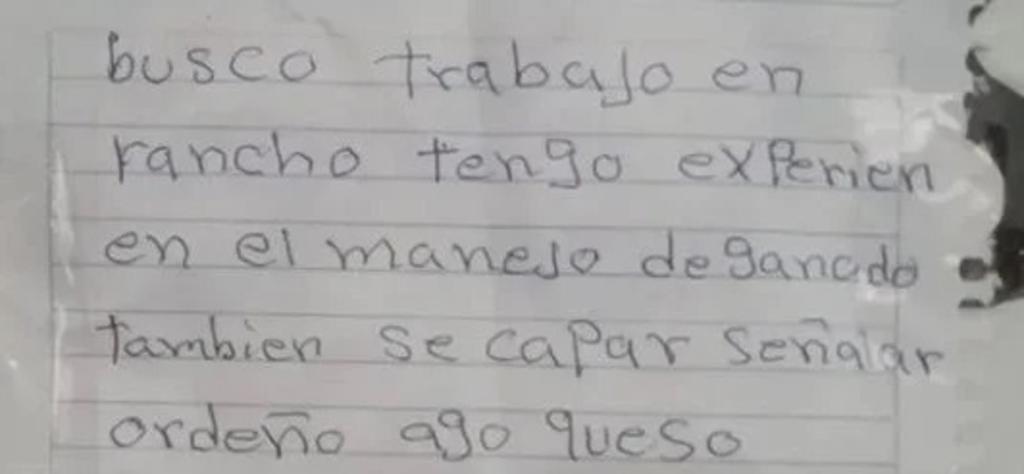 busco trabajo en
rancho tengo experien
en el manejo de ganado
tambien se capar señalar
ordeño ago queso